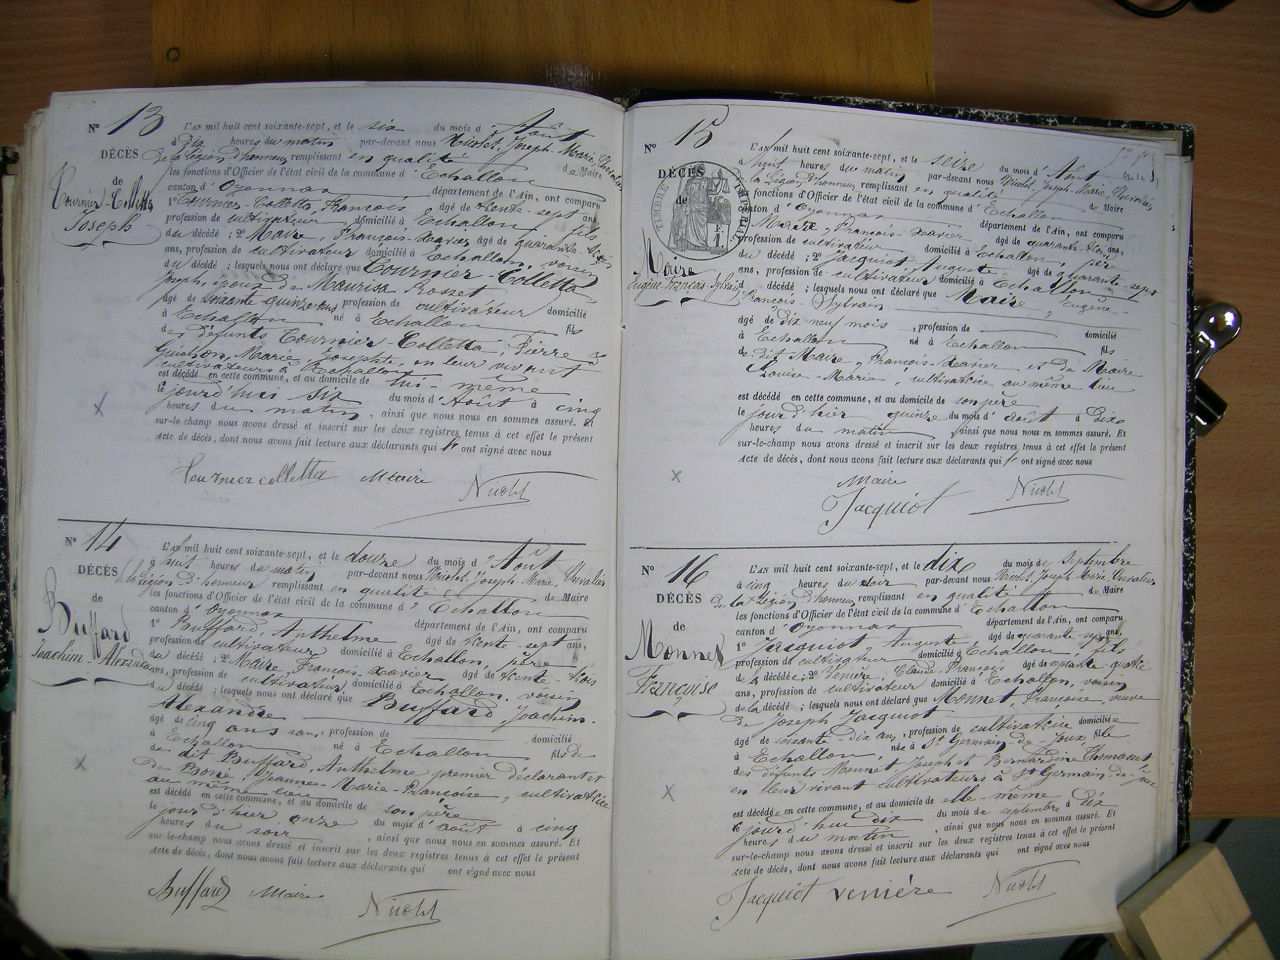 N° 13
DÉCÈS
de
Tournier-Colletta
Joseph
L'AN mil huit cent soixante-sept, et le six du mois d'Août
à dix heures du matin par-devant nous Nicolet, Joseph Marie, Chevalier
de la Légion d'honneur remplissant en qualité de Maire
les fonctions d'Officier de l'état civil de la commune d'Echallon
canton d'Oyonnax département de l'Ain, ont comparu
1° Tournier-Colletta, François âgé de trente-sept ans,
profession de cultivateur domicilié à Echallon, fils
du décédé ; 2° Maire, François-Xavier âgé de quarante-trois
ans, profession de cultivateur domicilié à Echallon, voisin
du décédé ; lesquels nous ont déclaré que Tournier-Colletta
Joseph, époux de Maurisa Rosset
âgé de soixante quinze ans profession de cultivateur domicilié
à Echallon né à Echallon fils
des défunts Tournier-Colletta, Pierre &
Guichon, Marie-Josephte, en leur vivant
cultivateurs à Echallon
est décédé en cette commune, et au domicile de lui-même
le jourd'hui six du mois d'Août à cinq
heures du matin, ainsi que nous nous en sommes assuré. Et
sur-le-champ nous avons dressé et inscrit sur les deux registres tenus à cet effet le présent
acte de décès, dont nous avons fait lecture aux déclarants qui ont signé avec nous
Tournier colletta Maire Nicolet
N° 14
DÉCÈS
de
Buffard
Joachim-Alexandre
L'AN mil huit cent soixante-sept, et le douze du mois d'Août
à huit heures du matin par-devant nous Nicolet, Joseph Marie, Chevalier
de la Légion d'honneur remplissant en qualité de Maire
les fonctions d'Officier de l'état civil de la commune d'Echallon
canton d'Oyonnax département de l'Ain, ont comparu
1° Buffard, Anthelme âgé de trente-sept ans,
profession de cultivateur domicilié à Echallon, père
du décédé ; 2° Maire, François-Xavier âgé de trente-trois
ans, profession de cultivateur, domicilié à Echallon, voisin
du décédé ; lesquels nous ont déclaré que Buffard, Joachim-
Alexandre
âgé de cinq ans, profession de domicilié
à Echallon né à Echallon fils de
du dit Buffard, Anthelme premier déclarant &
de Bone, Jeanne-Marie-Françoise, cultivatrice
au même lieu
est décédé en cette commune, et au domicile de son père
le jour d'hier onze du mois d'août à cinq
heures du soir, ainsi que nous nous en sommes assuré. Et
sur-le-champ nous avons dressé et inscrit sur les deux registres tenus à cet effet le présent
acte de décès, dont nous avons fait lecture aux déclarants qui ont signé avec nous
Buffard Maire Nicolet
N° 15
DÉCÈS
de
TIMBRE IMPÉRIAL
Maire
Eugène-François-Sylvain
L'AN mil huit cent soixante-sept, et le seize du mois d'Août
à huit heures du matin par-devant nous Nicolet, Joseph-Marie, Chevalier
de la Légion d'honneur remplissant en qualité de Maire
les fonctions d'Officier de l'état civil de la commune d'Echallon
canton d'Oyonnax département de l'Ain, ont comparu
1° Maire, François-Xavier âgé de quarante-trois ans,
profession de cultivateur domicilié à Echallon, père
du décédé ; 2° Jacquiot, Auguste âgé de quarante-sept
ans, profession de cultivateur domicilié à Echallon
du décédé ; lesquels nous ont déclaré que Maire, Eugène-
François-Sylvain
âgé de dix neuf mois, profession de domicilié
à Echallon né à Echallon fils
du dit Maire, François-Xavier et de Maire
Louise-Marie, cultivatrice au même lieu
est décédé en cette commune, et au domicile de son père
le jour d'hier quinze du mois d'août à dix
heures du matin, ainsi que nous nous en sommes assuré. Et
sur-le-champ nous avons dressé et inscrit sur les deux registres tenus à cet effet le présent
acte de décès, dont nous avons fait lecture aux déclarants qui ont signé avec nous
Maire
Jacquiot Nicolet
N° 16
DÉCÈS
de
Monnet
Françoise
L'AN mil huit cent soixante-sept, et le dix du mois de Septembre
à cinq heures du soir par-devant nous Nicolet, Joseph Marie, Chevalier
de la Légion d'honneur remplissant en qualité de Maire
les fonctions d'Officier de l'état civil de la commune d'Echallon
canton d'Oyonnax département de l'Ain, ont comparu
1° Jacquiot, Auguste âgé de quarante-sept ans,
profession de cultivateur domicilié à Echallon, fils
de la décédée ; 2° Venière, Claude-François âgé de
ans, profession de cultivateur domicilié à Echallon, voisin
de la décédé ; lesquels nous ont déclaré que Monnet, Françoise, veuve
de Joseph Jacquiot
âgé de soixante-dix ans, profession de cultivatrice domiciliée
à Echallon, née à St Germain de Joux fille
des défunts Monnet Joseph et Bernardine
en leur vivant cultivateurs à St Germain-de-Joux
est décédée en cette commune, et au domicile de elle même
le jourd'hui dix du mois de septembre à dix
heures du matin, ainsi que nous nous en sommes assuré. Et
sur-le-champ nous avons dressé et inscrit sur les deux registres tenus à cet effet le présent
acte de décès, dont nous avons fait lecture aux déclarants qui ont signé avec nous
Jacquiot venière Nicolet